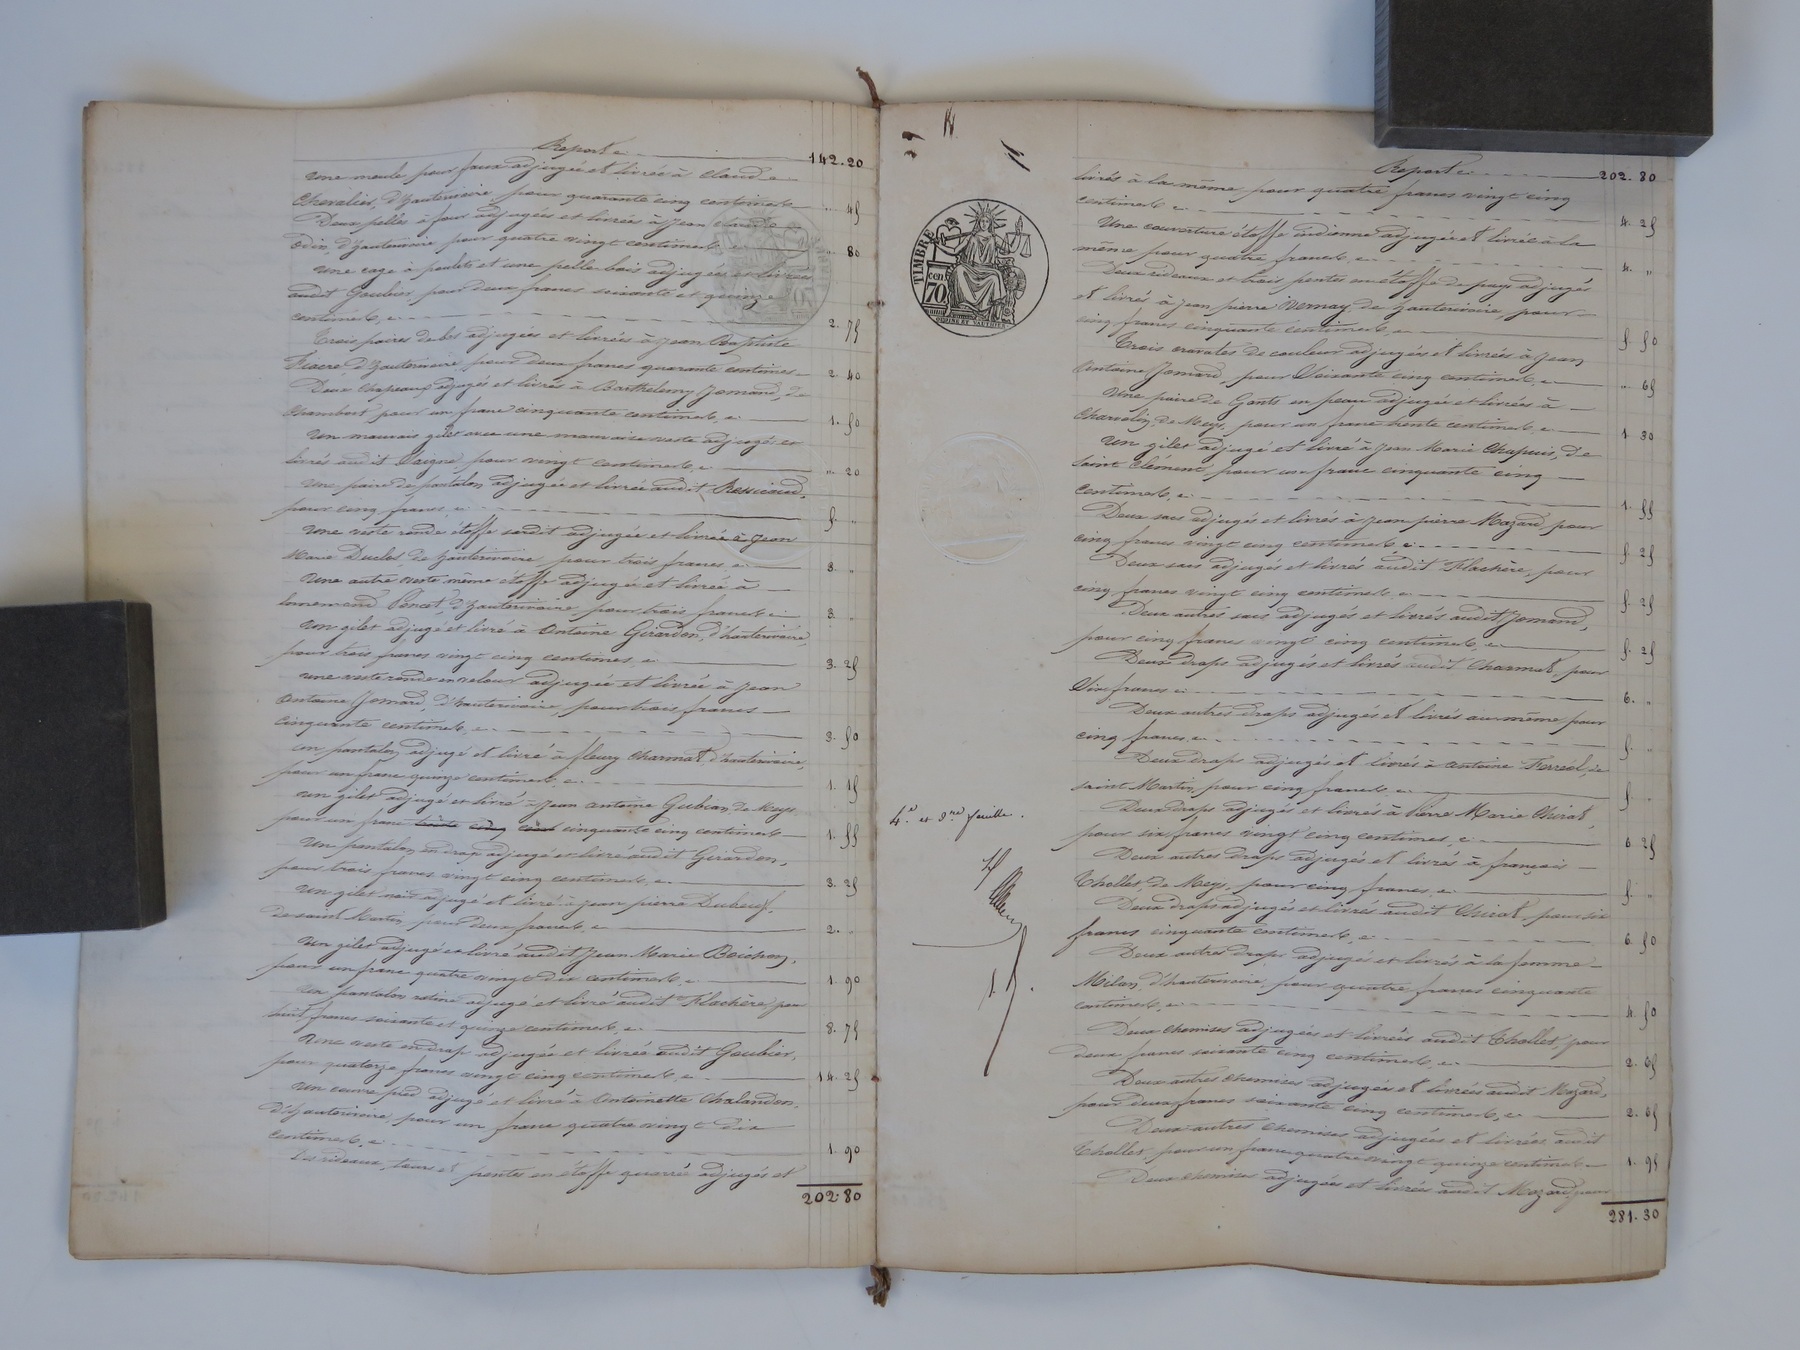 Reporte 142.20
Une meule pour faux adjugée et livrée à Claude
Chevalier, d'hauterivoire pour quarante cinq centimes " 45
Deux pelles à four adjugées et livrées à Jean Claude
d'hauterivoire pour quatre vingt centimes " 80
Une cage à poulets et une pelle bois adjugées et livrées
audit Goubier, pour deux francs soixante et quinze
centimes 2. 75
Trois paires de bas adjugées et livrées à Jean Baptiste
Fiacre, d'hauterivoire, pour deux francs quarante centimes 2. 40
Deux chapeaux adjugés et livrés à Barthelemy Jomand, de
Chambost pour un franc cinquante centimes 1. 50
Un mauvais gilet avec une mauvaise veste adjugés et
livrés audit pour vingt centimes " 20
Une paire de pantalon adjugée et livrée audit Ressicaud,
pour cinq francs 5. "
Une veste ronde étoffe adjugée et livrée à Jean
Marie Duclos, de hauterivoire, pour trois francs 3. "
Une autre veste même étoffe adjugée et livrée à
Poncet, d'hauterivoire, pour trois francs 3. "
Un gilet adjugé et livré à Antoine Girardon, d'hauterivoire,
pour trois francs vingt cinq centimes 3. 25
Une veste ronde en velour adjugée et livrée à Jean
Antoine Jomard, d'hauterivoire, pour trois francs
cinquante centimes 3. 50
Un pantalon adjugé et livré à fleury Charmat, d'hauterivoire,
pour un franc quinze centimes 1. 15
Un gilet adjugé et livré à Jean Antoine Gubian, de Meys
pour un franc trente cinq cinquante cinq centimes 1. 55
Un pantalon en drap adjugé et livré audit Girardon,
pour trois francs vingt cinq centimes 3. 25
Un gilet noir adjugé et livré à Jean pierre Dubeuf,
de saint Martin pour deux francs 2. "
Un gilet adjugé et livré audit Jean Marie Boichon,
pour un franc quatre vingt dix centimes 1. 90
Un pantalon ratine adjugé et livré audit Flachère, pour
huit francs soixante et quinze centimes 8. 75
Une veste en drap adjugée et livrée audit Goubier,
pour quatorze francs vingt cinq centimes 14. 25
Un couvre pied adjugé et livré à Antoinette Chalandon,
d'hauterivoire, pour un franc quatre vingt dix
centimes 1. 90
Des rideaux, tours et pentes en étoffe quarré adjugés et
202.80
TIMBRE
cen 70
4e et dre feuille.
Reporte 202. 80
livrés à la même pour quatre francs vingt cinq
centimes 4. 25
Une couverture étoffe indienne adjugée et livrée à la
même pour quatre francs 4. "
Deux rideaux et trois pentes en étoffe de pays adjugés
et livrés à jean pierre Vernay, de hauterivoire, pour
cinq francs cinquante centimes 5. 50
Trois cravates de couleur adjugées et livrées à Jean
Antoine Jomard, pour Soixante cinq centimes " 65
Une paire de Gants en peau adjugée et livrée à
Charvolin, de Meys, pour un franc trente centimes 1 30
Un gilet adjugé et livré à Jean Marie Chapuis, de
saint Clément, pour un franc cinquante cinq
centimes 1. 55
Deux sacs adjugés et livrés à jean pierre Mazard, pour
cinq francs vingt cinq centimes 5. 25
Deux sacs adjugés et livrés audit Flachère, pour
cinq francs vingt cinq centimes 5. 25
Deux autres sacs adjugés et livrés audit Jomand,
pour cinq francs vingt cinq centimes 5. 25
Deux draps adjugés et livrés audit Charmat, pour
Six francs 6. "
Deux autres draps adjugés et livrés au même pour
cinq francs 5. "
Deux draps adjugés et livrés à Antoine Ferréol, de
saint Martin, pour cinq francs 5. "
Deux draps adjugés et livrés à Pierre Marie Chirat,
pour six francs vingt cinq centimes 6. 25
Deux autres draps adjugés et livrés à françois
Thollet, de Meys, pour cinq francs 5. "
Deux draps adjugés et livrés audit Chirat, pour six
francs cinquante centimes 6. 50
Deux autres draps adjugés et livrés à la femme
Milan, d'hauterivoire, pour quatre francs cinquante
centimes 4. 50
Deux chemises adjugées et livrées audit Thollet, pour
deux francs soixante cinq centimes 2. 65
Deux autres chemises adjugées et livrées audit Mazard,
pour deux francs soixante cinq centimes 2. 65
Deux autres chemises adjugées et livrées audit
Thollet, pour un franc quatre vingt quinze centimes 1. 95
Deux chemises adjugées et livrées audit Mazard pour
281. 30